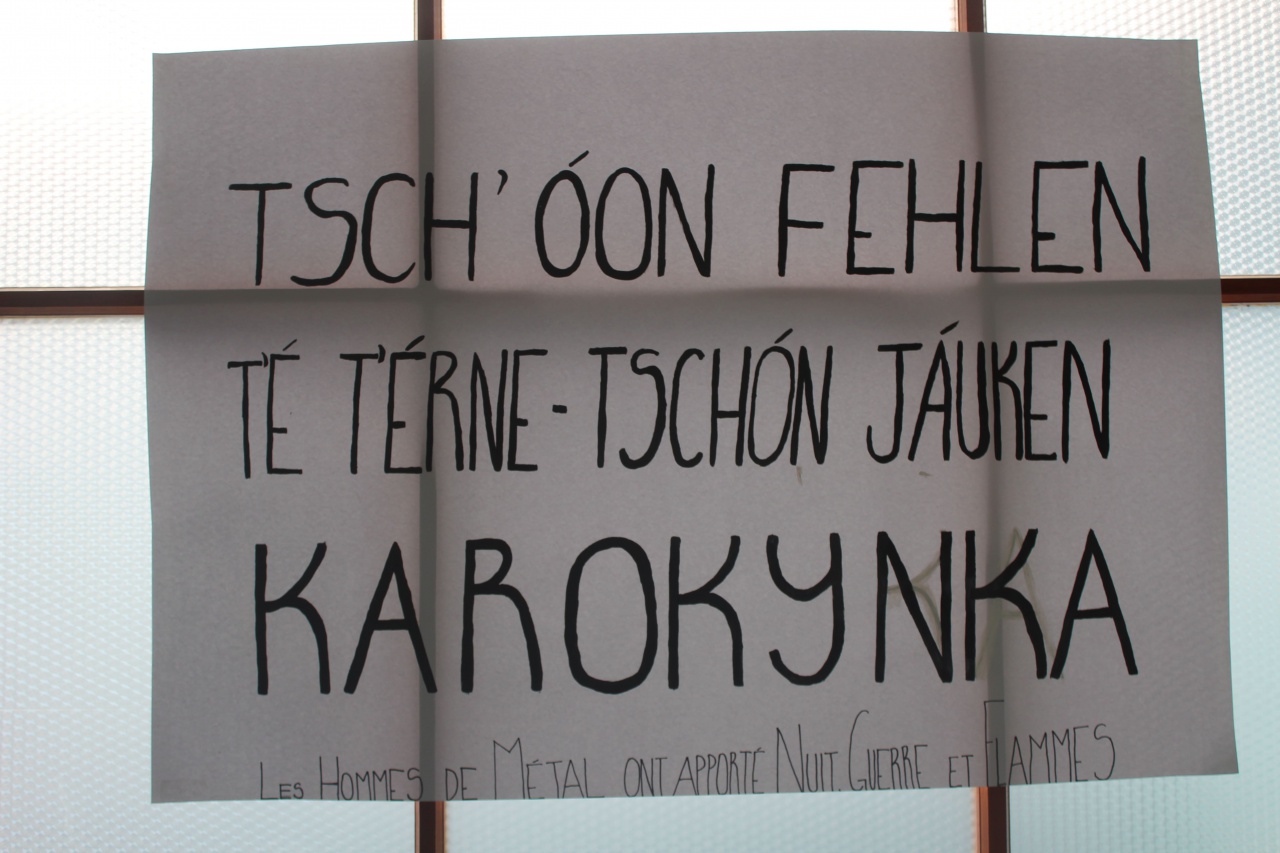 TSCH'ÓON FEHLEN
T'É T'ÉRNE-TSCHÓN JÁUKEN
KAROKYNKA
LES HOMMES DE MÉTAL ONT APPORTÉ NUIT, GUERRE ET FLAMMES